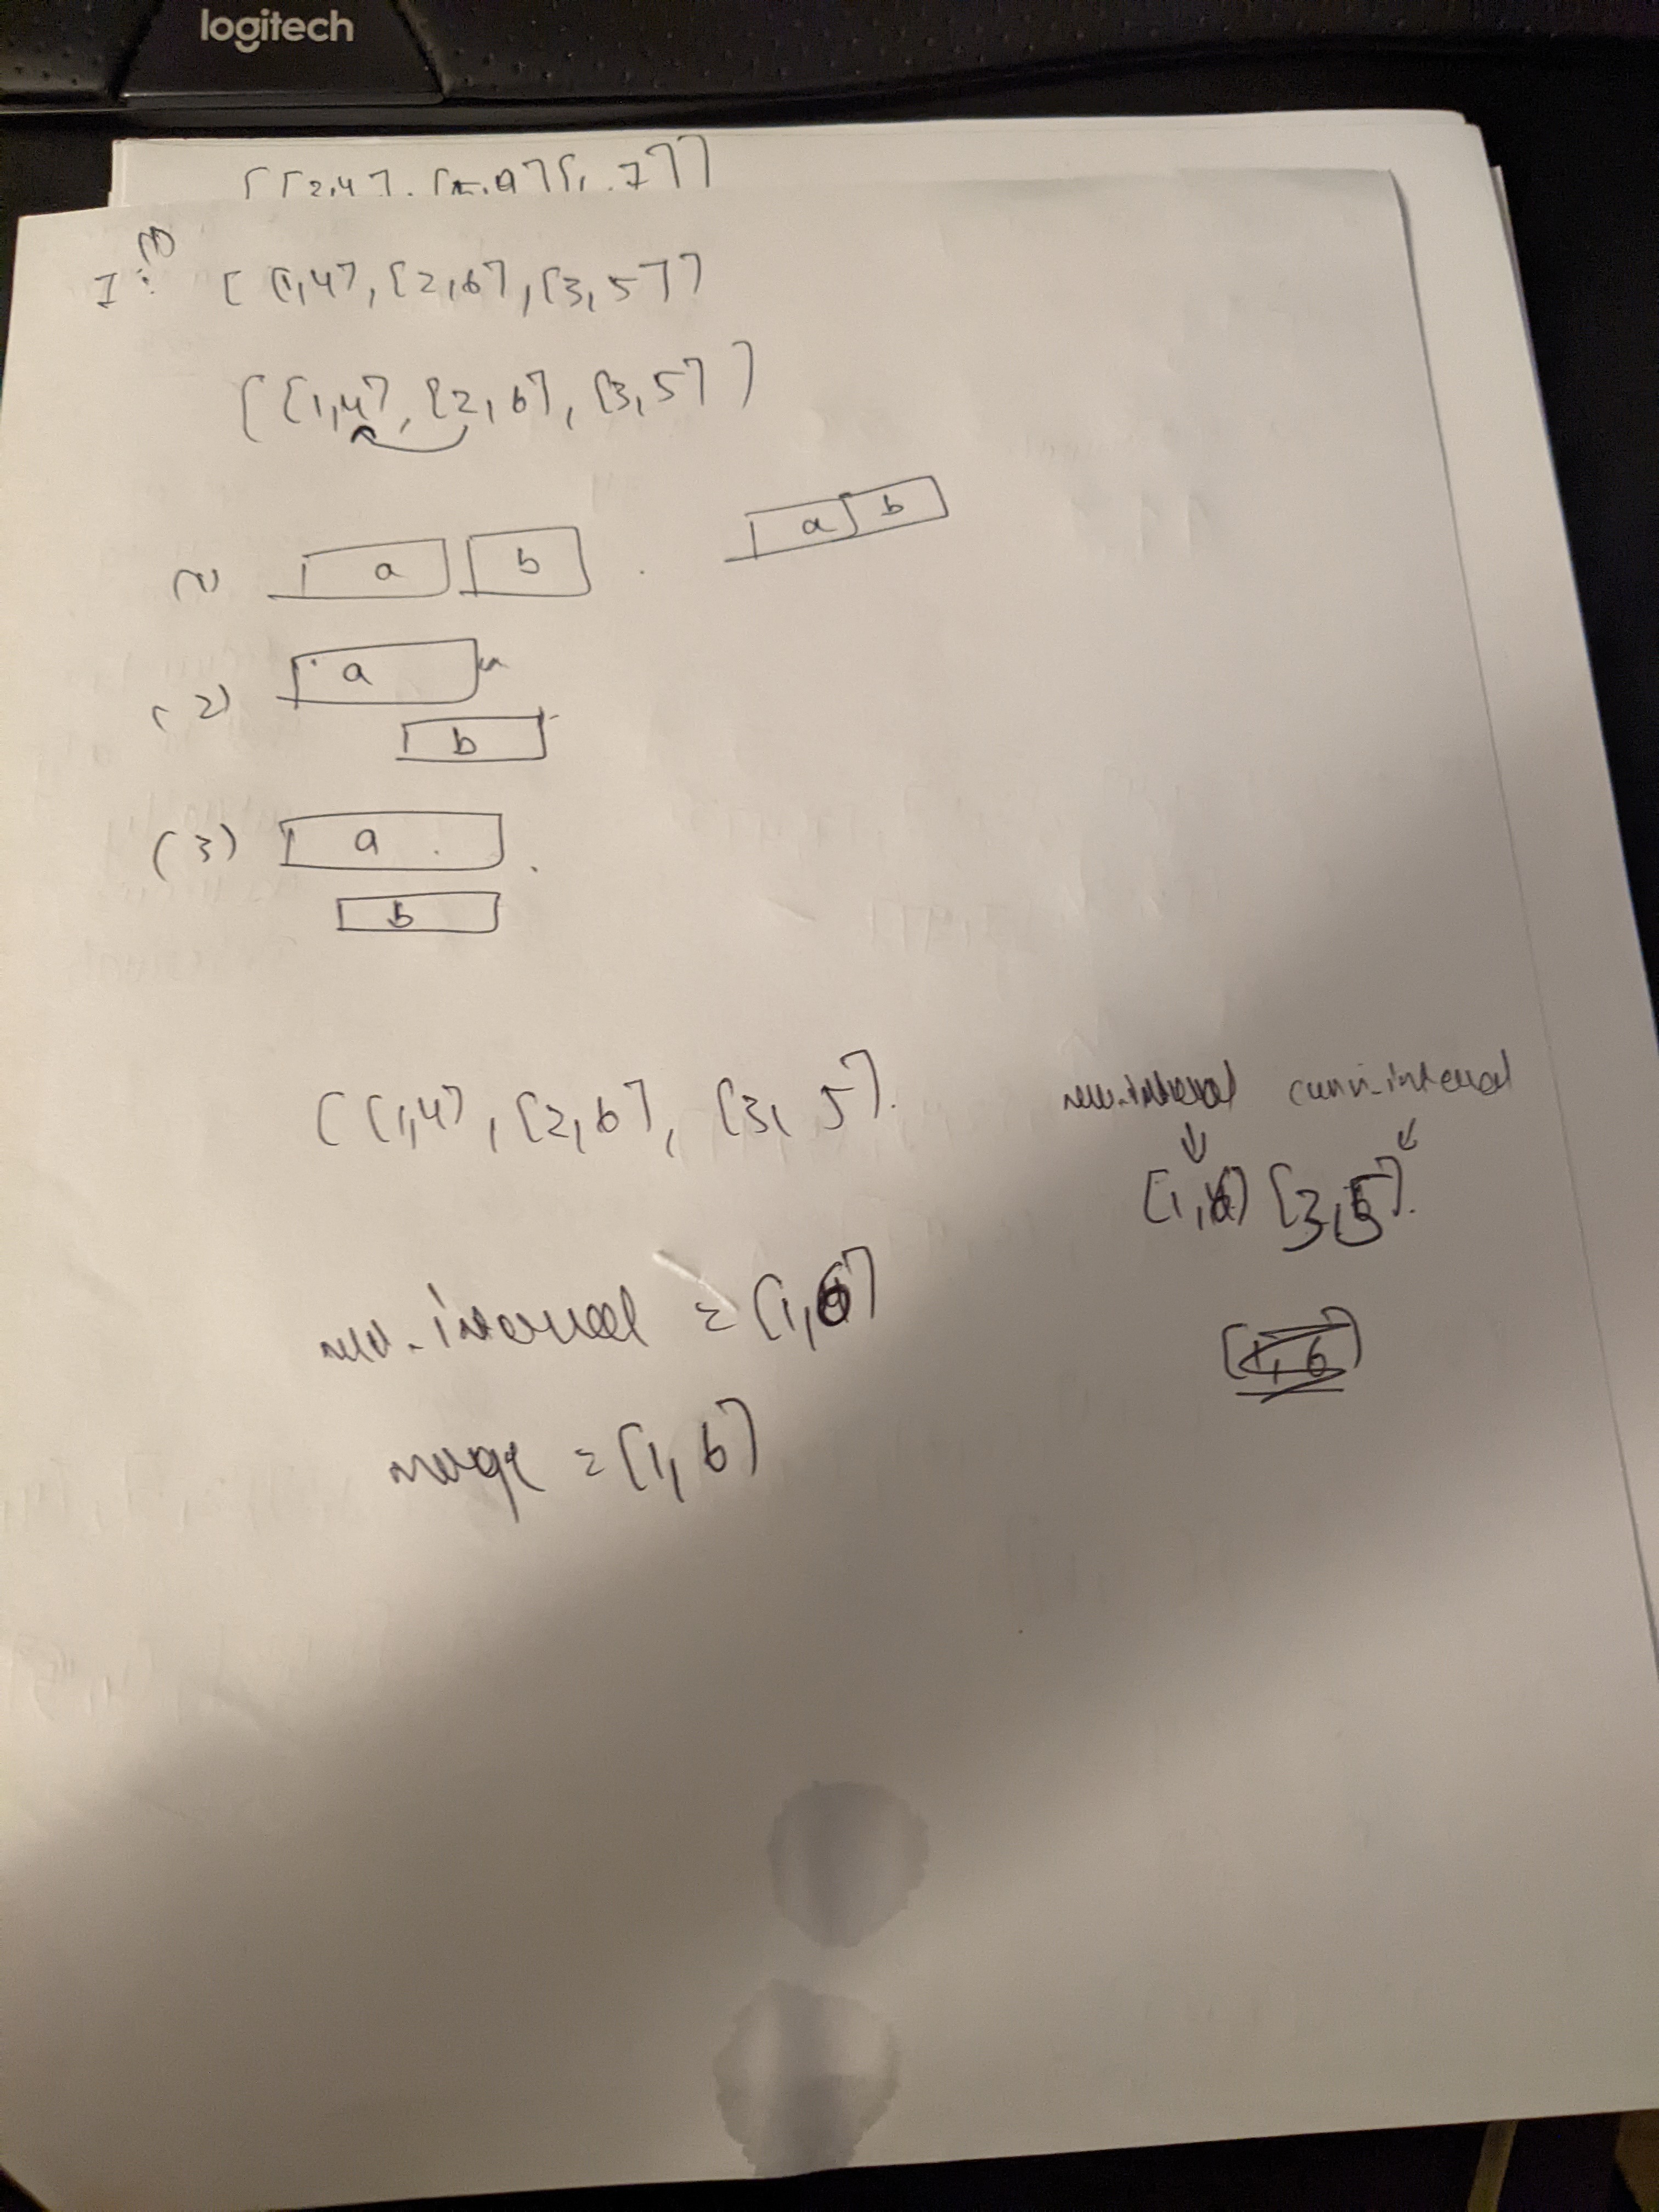 logitech
[[2,4],
(1)
I: [[1,4],[2,6],[3,5]]
[[1,4],[2,6],[3,5]]
(1) a b a b
(2) a
b
(3) a
b
[[1,4],[2,6],[3,5].
new_interval curr_interval
[1,6] [3,5].
new_interval = [1,6]
[1,6]
merge = [1,6]